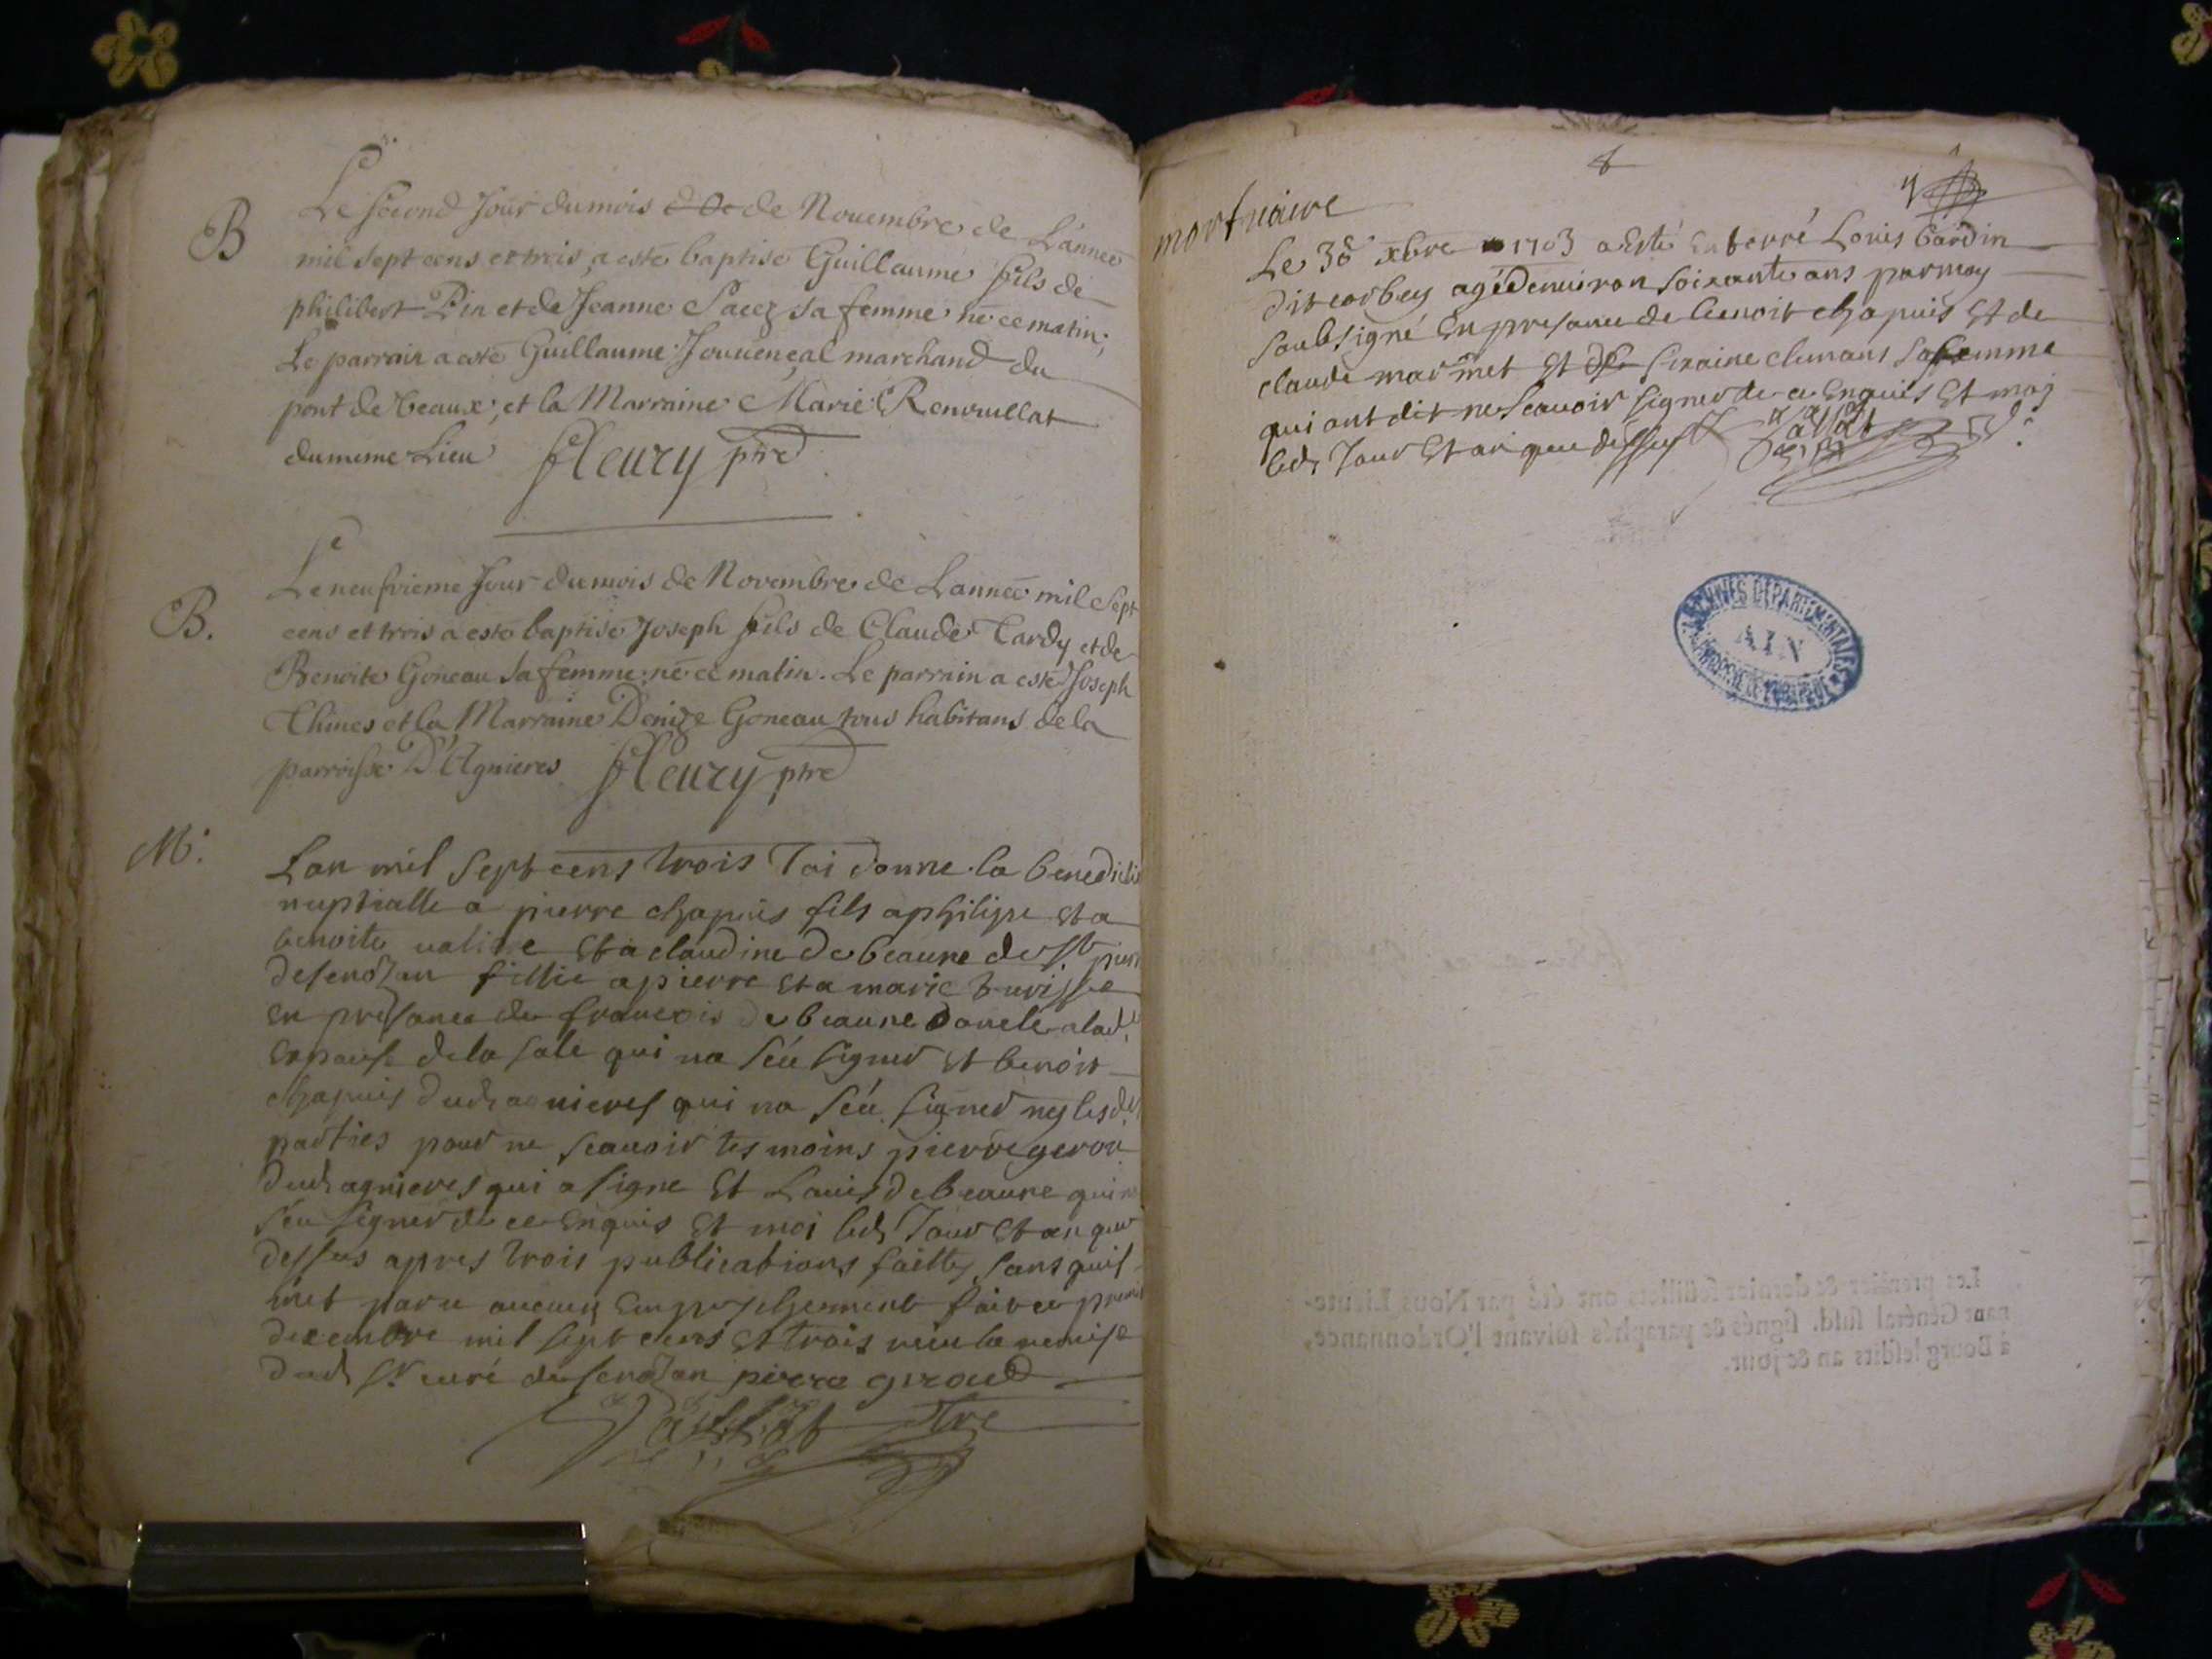 B
Le second Jour du mois de Nouembre de L'année
mil sept cens et trois, a esté baptisé Guillaume fils de
philibert Pin et de Jeanne Pacez sa femme né ce matin;
Le parrain a esté Guillaume Jouuençal marchand du
pont de Veaux, et la Marraine Marie Renouillat
du meme Lieu fleury ptre
B.
Le neufvieme Jour du mois de Novembre de L'année mil sept
cens et trois a esté baptisé Joseph fils de Claude Tardy et de
Benoite Goneau sa femme né ce matin. Le parrain a esté Joseph
et la Marraine Denize Goneau tous habitans de la
parroisse D'Agnieres fleury ptre
M.
Lan mil sept cens trois Jai donne la benedictio
nuptialle a pierre chapuis fils a philippe et a
benoite et a claudine debeaune de St pierre
de senozan fillie a pierre et a marie
en presance de francois debeaune oncle a lad.
espouse de la sale qui na séu signer et benoit
chapuis dud agnieres qui na séu signer ny lesd.
parties pour ne scauoir tesmoins pierre gerou
dud agnieres qui a signe et Louis debeaune qui na
séu signer de ce enquis et moi led Jour et an que
dessus apres trois publications faittes sans quil
met paru aucun empeschement fait ce premier
decembre mil sept cens et trois veu la remise
dud Sr curé de senozan pierre giroud
ptre
8
mortuaire
Le 3e xbre 1703 a esté enterré Louis Gardin
dit corbey agé denuiron soixante ans par moy
soubsigné en presance de benoit chapuis et de
claude marmet et sa femme
qui ont dit ne scauoir signer de ce enquis et moy
led Jour et an que dessus
ARCHIVES DEPARTEMENTALES
AIN
Les premier & dernier feüillets ont été par Nous Lieute-
nant Général susd. signés & paraphés suivant l'Ordonnance,
à Bourg lesdits an & jour.